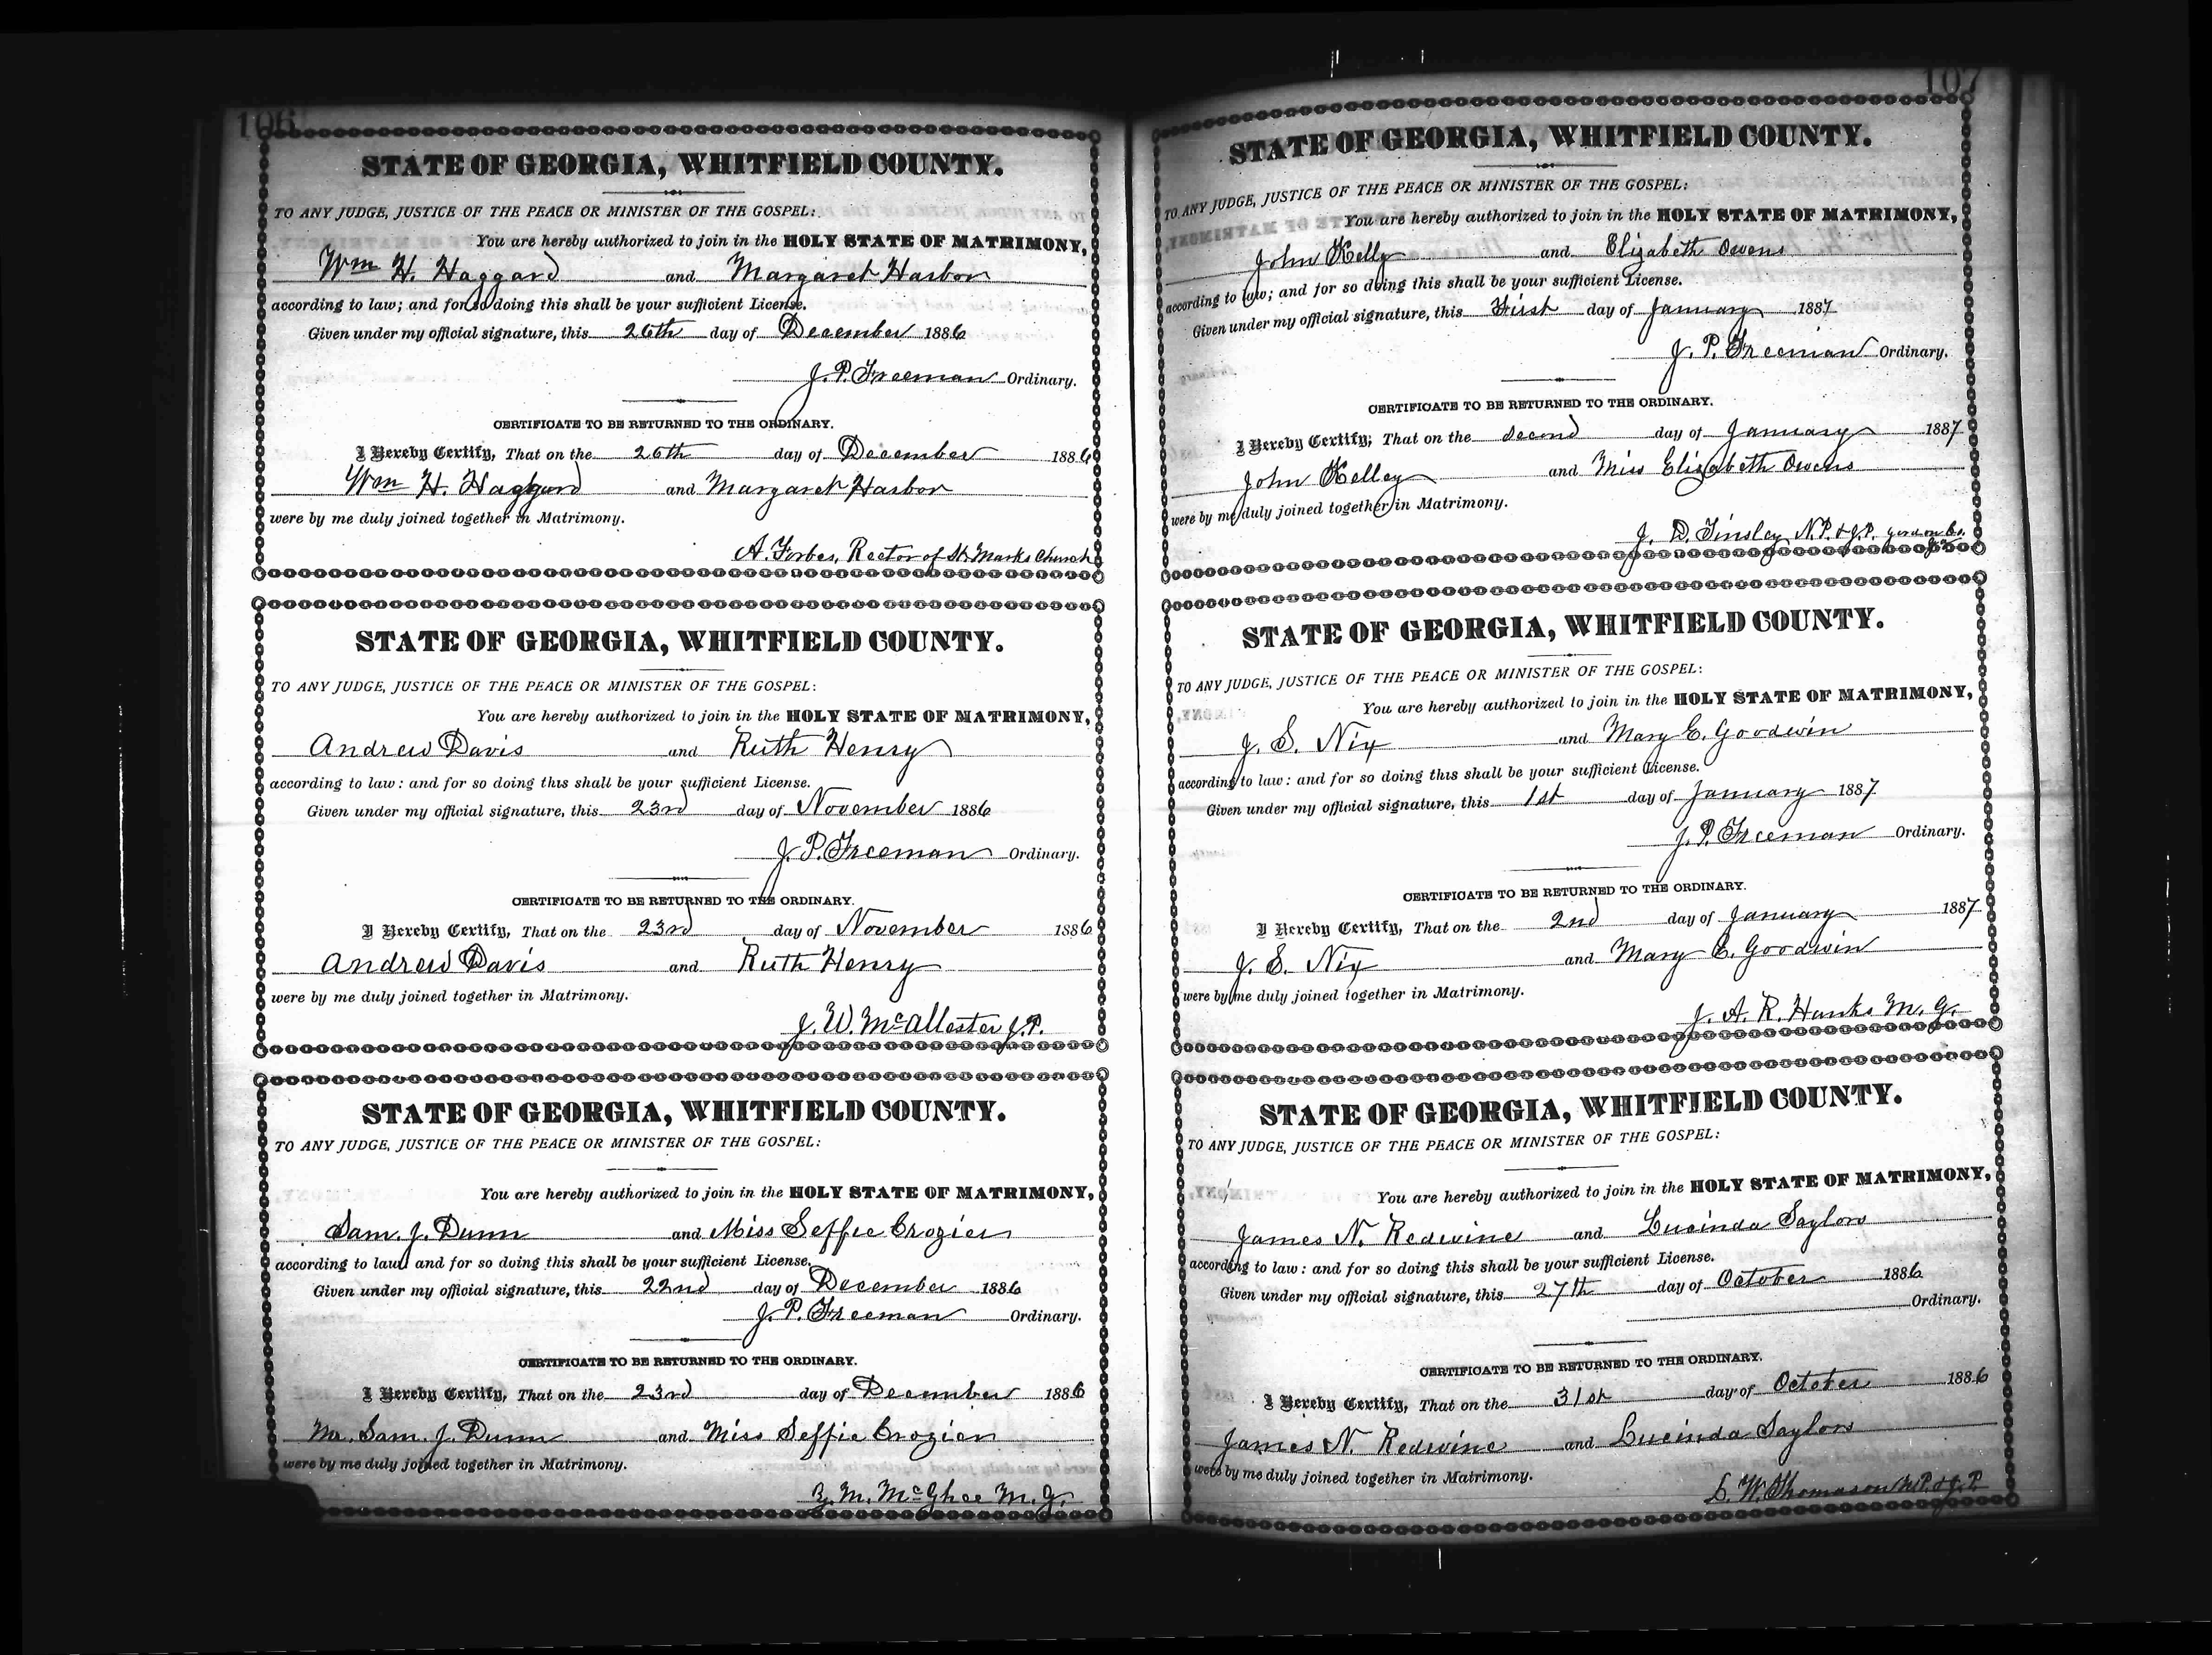 106
STATE OF GEORGIA, WHITFIELD COUNTY.
TO ANY JUDGE, JUSTICE OF THE PEACE OR MINISTER OF THE GOSPEL:
You are hereby authorized to join in the HOLY STATE OF MATRIMONY,
Wm H. Haggard and Margaret Harbor
according to law; and for so doing this shall be your sufficient License.
Given under my official signature, this 26th day of December 1886
J. P. Freeman Ordinary.
CERTIFICATE TO BE RETURNED TO THE ORDINARY.
I Hereby Certify, That on the 26th day of December 1886
Wm H. Haggard and Margaret Harbor
were by me duly joined together in Matrimony.
A. Forbes, Rector of St. Marks Church
STATE OF GEORGIA, WHITFIELD COUNTY.
TO ANY JUDGE, JUSTICE OF THE PEACE OR MINISTER OF THE GOSPEL:
You are hereby authorized to join in the HOLY STATE OF MATRIMONY,
Andrew Davis and Ruth Henry
according to law: and for so doing this shall be your sufficient License.
Given under my official signature, this 23rd day of November 1886
J. P. Freeman Ordinary.
CERTIFICATE TO BE RETURNED TO THE ORDINARY.
I Hereby Certify, That on the 23rd day of November 1886
Andrew Davis and Ruth Henry
were by me duly joined together in Matrimony.
J. W. McAllester J.P.
STATE OF GEORGIA, WHITFIELD COUNTY.
TO ANY JUDGE, JUSTICE OF THE PEACE OR MINISTER OF THE GOSPEL:
You are hereby authorized to join in the HOLY STATE OF MATRIMONY,
Sam. J. Dunn and Miss Seffie Crozier
according to law and for so doing this shall be your sufficient License.
Given under my official signature, this 22nd day of December 1886
J. P. Freeman Ordinary.
CERTIFICATE TO BE RETURNED TO THE ORDINARY.
I Hereby Certify, That on the 23rd day of December 1886
Mr. Sam. J. Dunn and Miss Seffie Crozier
were by me duly joined together in Matrimony.
Z. M. McGhee M.G.
107
STATE OF GEORGIA, WHITFIELD COUNTY.
TO ANY JUDGE, JUSTICE OF THE PEACE OR MINISTER OF THE GOSPEL:
You are hereby authorized to join in the HOLY STATE OF MATRIMONY,
John Kelly and Elizabeth Owens
according to law; and for so doing this shall be your sufficient License.
Given under my official signature, this First day of January 1887
J. P. Freeman Ordinary.
CERTIFICATE TO BE RETURNED TO THE ORDINARY.
I Hereby Certify; That on the second day of January 1887
John Kelley and Miss Elizabeth Owens
were by me duly joined together in Matrimony.
J. D. Tinsley N.P. & J.P. Gordon Co. Ga.
STATE OF GEORGIA, WHITFIELD COUNTY.
TO ANY JUDGE, JUSTICE OF THE PEACE OR MINISTER OF THE GOSPEL:
You are hereby authorized to join in the HOLY STATE OF MATRIMONY,
J. S. Nix and Mary E. Goodwin
according to law: and for so doing this shall be your sufficient License.
Given under my official signature, this 1st day of January 1887
J. P. Freeman Ordinary.
CERTIFICATE TO BE RETURNED TO THE ORDINARY.
I Hereby Certify, That on the 2nd day of January 1887
J. S. Nix and Mary E. Goodwin
were by me duly joined together in Matrimony.
J. A. R. Hanks M.G.
STATE OF GEORGIA, WHITFIELD COUNTY.
TO ANY JUDGE, JUSTICE OF THE PEACE OR MINISTER OF THE GOSPEL:
You are hereby authorized to join in the HOLY STATE OF MATRIMONY,
James N. Redwine and Lucinda Saylors
according to law: and for so doing this shall be your sufficient License.
Given under my official signature, this 27th day of October 1886
Ordinary.
CERTIFICATE TO BE RETURNED TO THE ORDINARY.
I Hereby Certify, That on the 31st day of October 1886
James N. Redwine and Lucinda Saylors
were by me duly joined together in Matrimony.
L. W. Thomason N.P. & J.P.